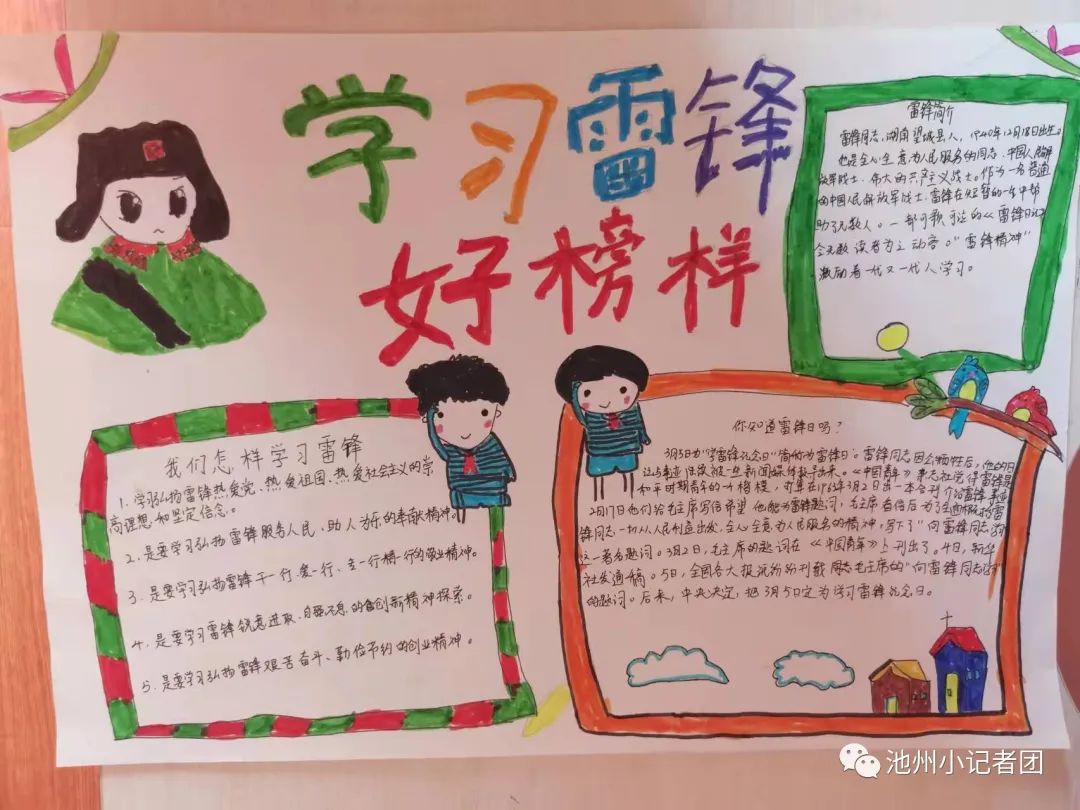 学习雷锋
好榜样
雷锋简介
雷锋同志,湖南望城县人,1940年12月18日出生。
他是全心全意为人民服务的同志,中国人民解
放军战士,伟大的共产主义战士。作为一名普通
的中国人民解放军战士,雷锋在短暂的一生中帮
助了无数人。一部可歌可泣的《雷锋日记》
令无数读者为之动容。"雷锋精神"
激励着一代又一代人学习。
我们怎样学习雷锋
1.学习弘扬雷锋热爱党、热爱祖国、热爱社会主义的崇
高理想和坚定信念。
2.是要学习弘扬雷锋服务人民、助人为乐的奉献精神。
3.是要学习弘扬雷锋干一行爱一行、专一行精一行的敬业精神。
4.是要学习雷锋锐意进取、自强不息的创新精神探索。
5.是要学习弘扬雷锋艰苦奋斗、勤俭节约的创业精神。
你知道雷锋日吗?
3月5日为"学雷锋纪念日" 雷锋同志因公牺牲后,他的日
记与事迹 被一些新闻媒体 出来。《中国青年》杂志社觉得雷锋是
和平时期青年的 楷模,
2月17日他们给毛主席写信希望他能为雷锋题词,毛主席看信后为了
雷锋同志一切从人民利益出发,全心全意为人民服务的精神,写下了"向雷锋同志学习"
这一著名题词。3月2日,毛主席的题词在《中国青年》上刊出了。4日,新华
社发通稿。5日,全国各大报纸纷纷刊载 毛主席的"向雷锋同志学习"
的题词。后来,中央决定,把3月5日定为学习雷锋纪念日。
池州小记者团